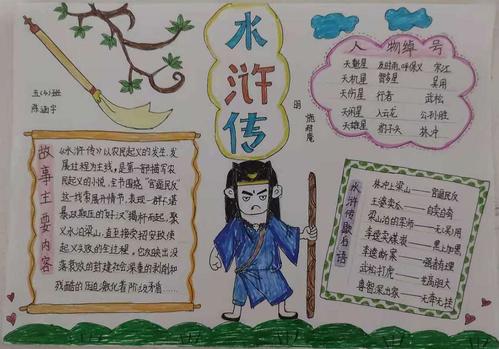 水浒传
明 施耐庵
五(4)班
故事主要内容
《水浒传》以农民起义的发生、发
展过程为主线,是第一部描写农
民起义的小说,全书围绕“官逼民反”
这一线索展开情节,表现一群不堪
暴政欺压的“好汉”揭竿而起,聚
义水泊梁山,直至接受招安致使
起义失败的全过程,
落腐败的封建社会
残酷的压迫激化着阶级矛盾……
人物绰号
天魁星 及时雨,呼保义 宋江
天机星 智多星 吴用
天伤星 行者 武松
天闲星 入云龙 公孙胜
天雄星 豹子头 林冲
水浒传歇后语
林冲上梁山——官逼民反
王婆卖瓜——自卖自夸
梁山泊的军师——无(吴)用
李逵卖煤炭——黑上加黑
李逵断案——强者有理
武松打虎——艺高胆大
鲁智深出家——无牵无挂